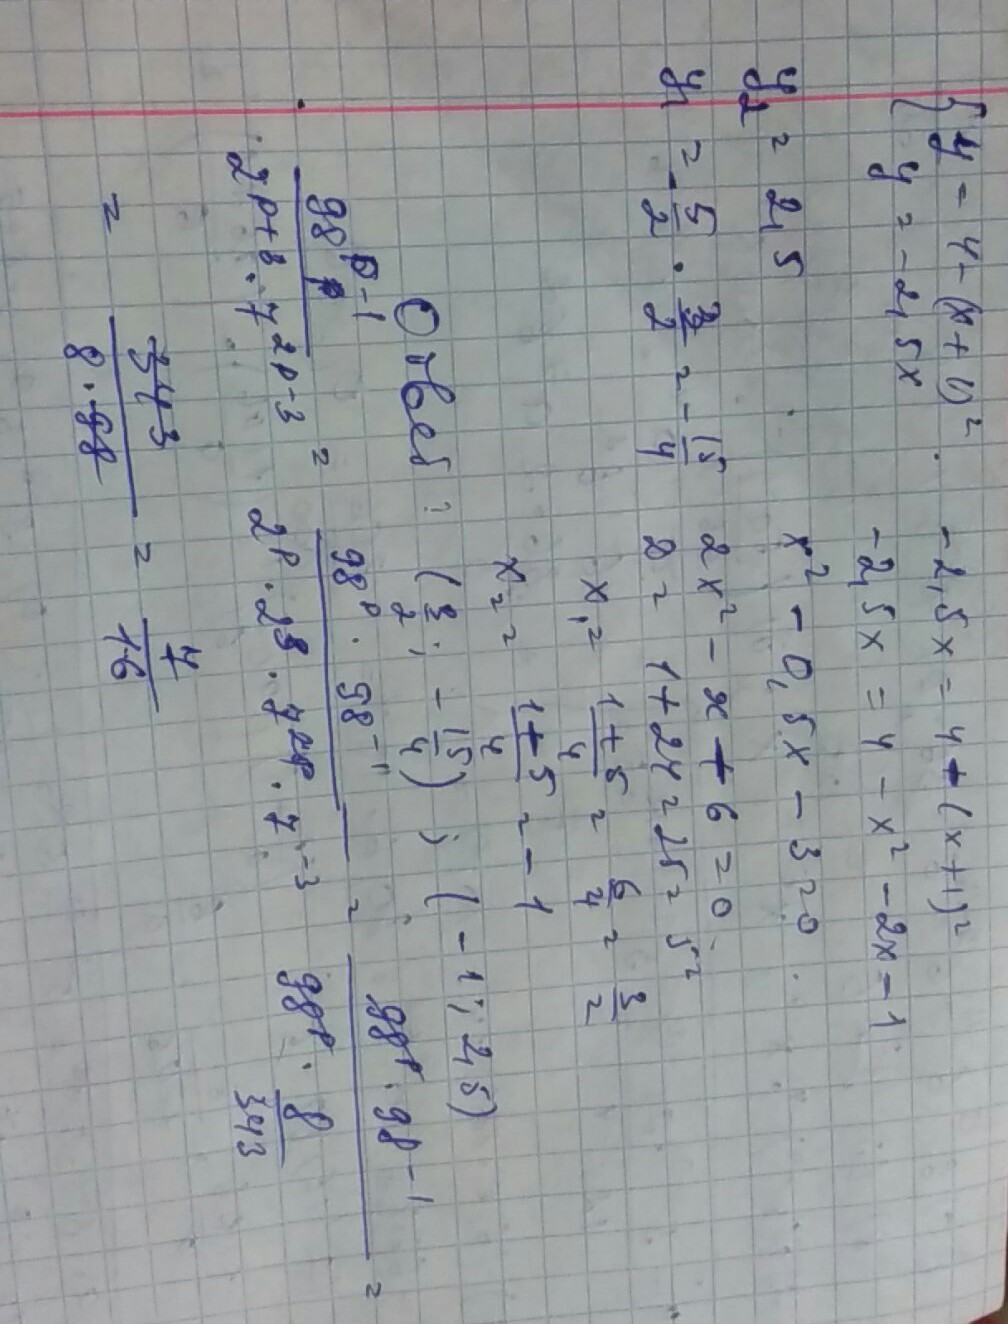 { y = 4 - (x + 1)²
y = -2,5x
-2,5x = 4 - (x+1)²
-2,5x = 4 - x² - 2x - 1
x² - 0,5x - 3 = 0
2x² - x - 6 = 0
D = 1 + 24 = 25 = 5²
x₁ = (1+5)/4 = 6/4 = 3/2
x₂ = (1-5)/4 = -1
y₂ = 2,5
y₁ = -5/2 · 3/2 = -15/4
Ответ: (3/2; -15/4); (-1; 2,5)
98^(p-1) / (2^(p+3) · 7^(2p-3)) = (98^p · 98^(-1)) / (2^p · 2^3 · 7^(2p) · 7^(-3)) = (98^p · 98^(-1)) / (98^p · 8/343) =
= 343 / (8 · 98) = 7/16